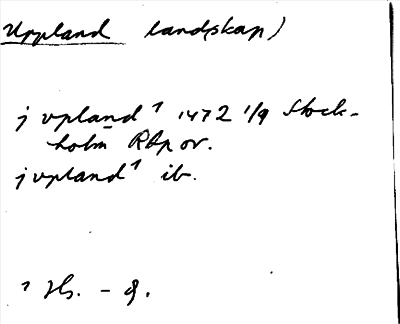 Uppland landskap)
j vpland¹ 1472 1/9 Stock-
holm RAp or.
j vpland¹ ib.
¹ Hs. -